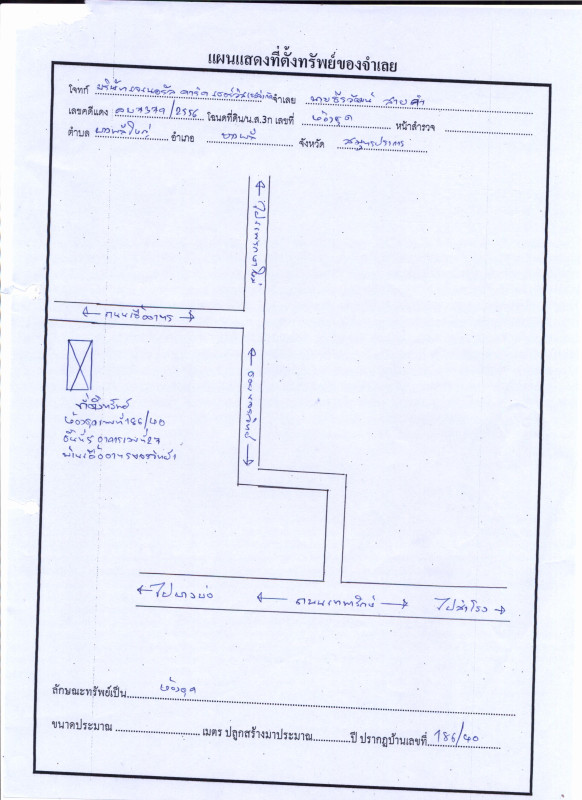 แผนแสดงที่ตั้งทรัพย์ของจำเลย
โจทก์ บริษัท เจเนอรัล คาร์ด เซอร์วิสเซส จำกัด จำเลย นายธีรวัฒน์ สายคำ
เลขคดีแดง ผบ7379/2556 โฉนดที่ดิน/น.ส.3ก เลขที่ ห้องชุด หน้าสำรวจ
ตำบล บางพลีใหญ่ อำเภอ บางพลี จังหวัด สมุทรปราการ
ถนนเอื้ออาทร
ที่ตั้งทรัพย์
ห้องชุดเลขที่ 186/40
ชั้นที่ 5 อาคารเลขที่ 27
ไปบางบ่อ
ถนนเทพารักษ์
ไปสำโรง
ลักษณะทรัพย์เป็น ห้องชุด
ขนาดประมาณ เมตร ปลูกสร้างมาประมาณ ปี ปรากฏบ้านเลขที่ 186/40